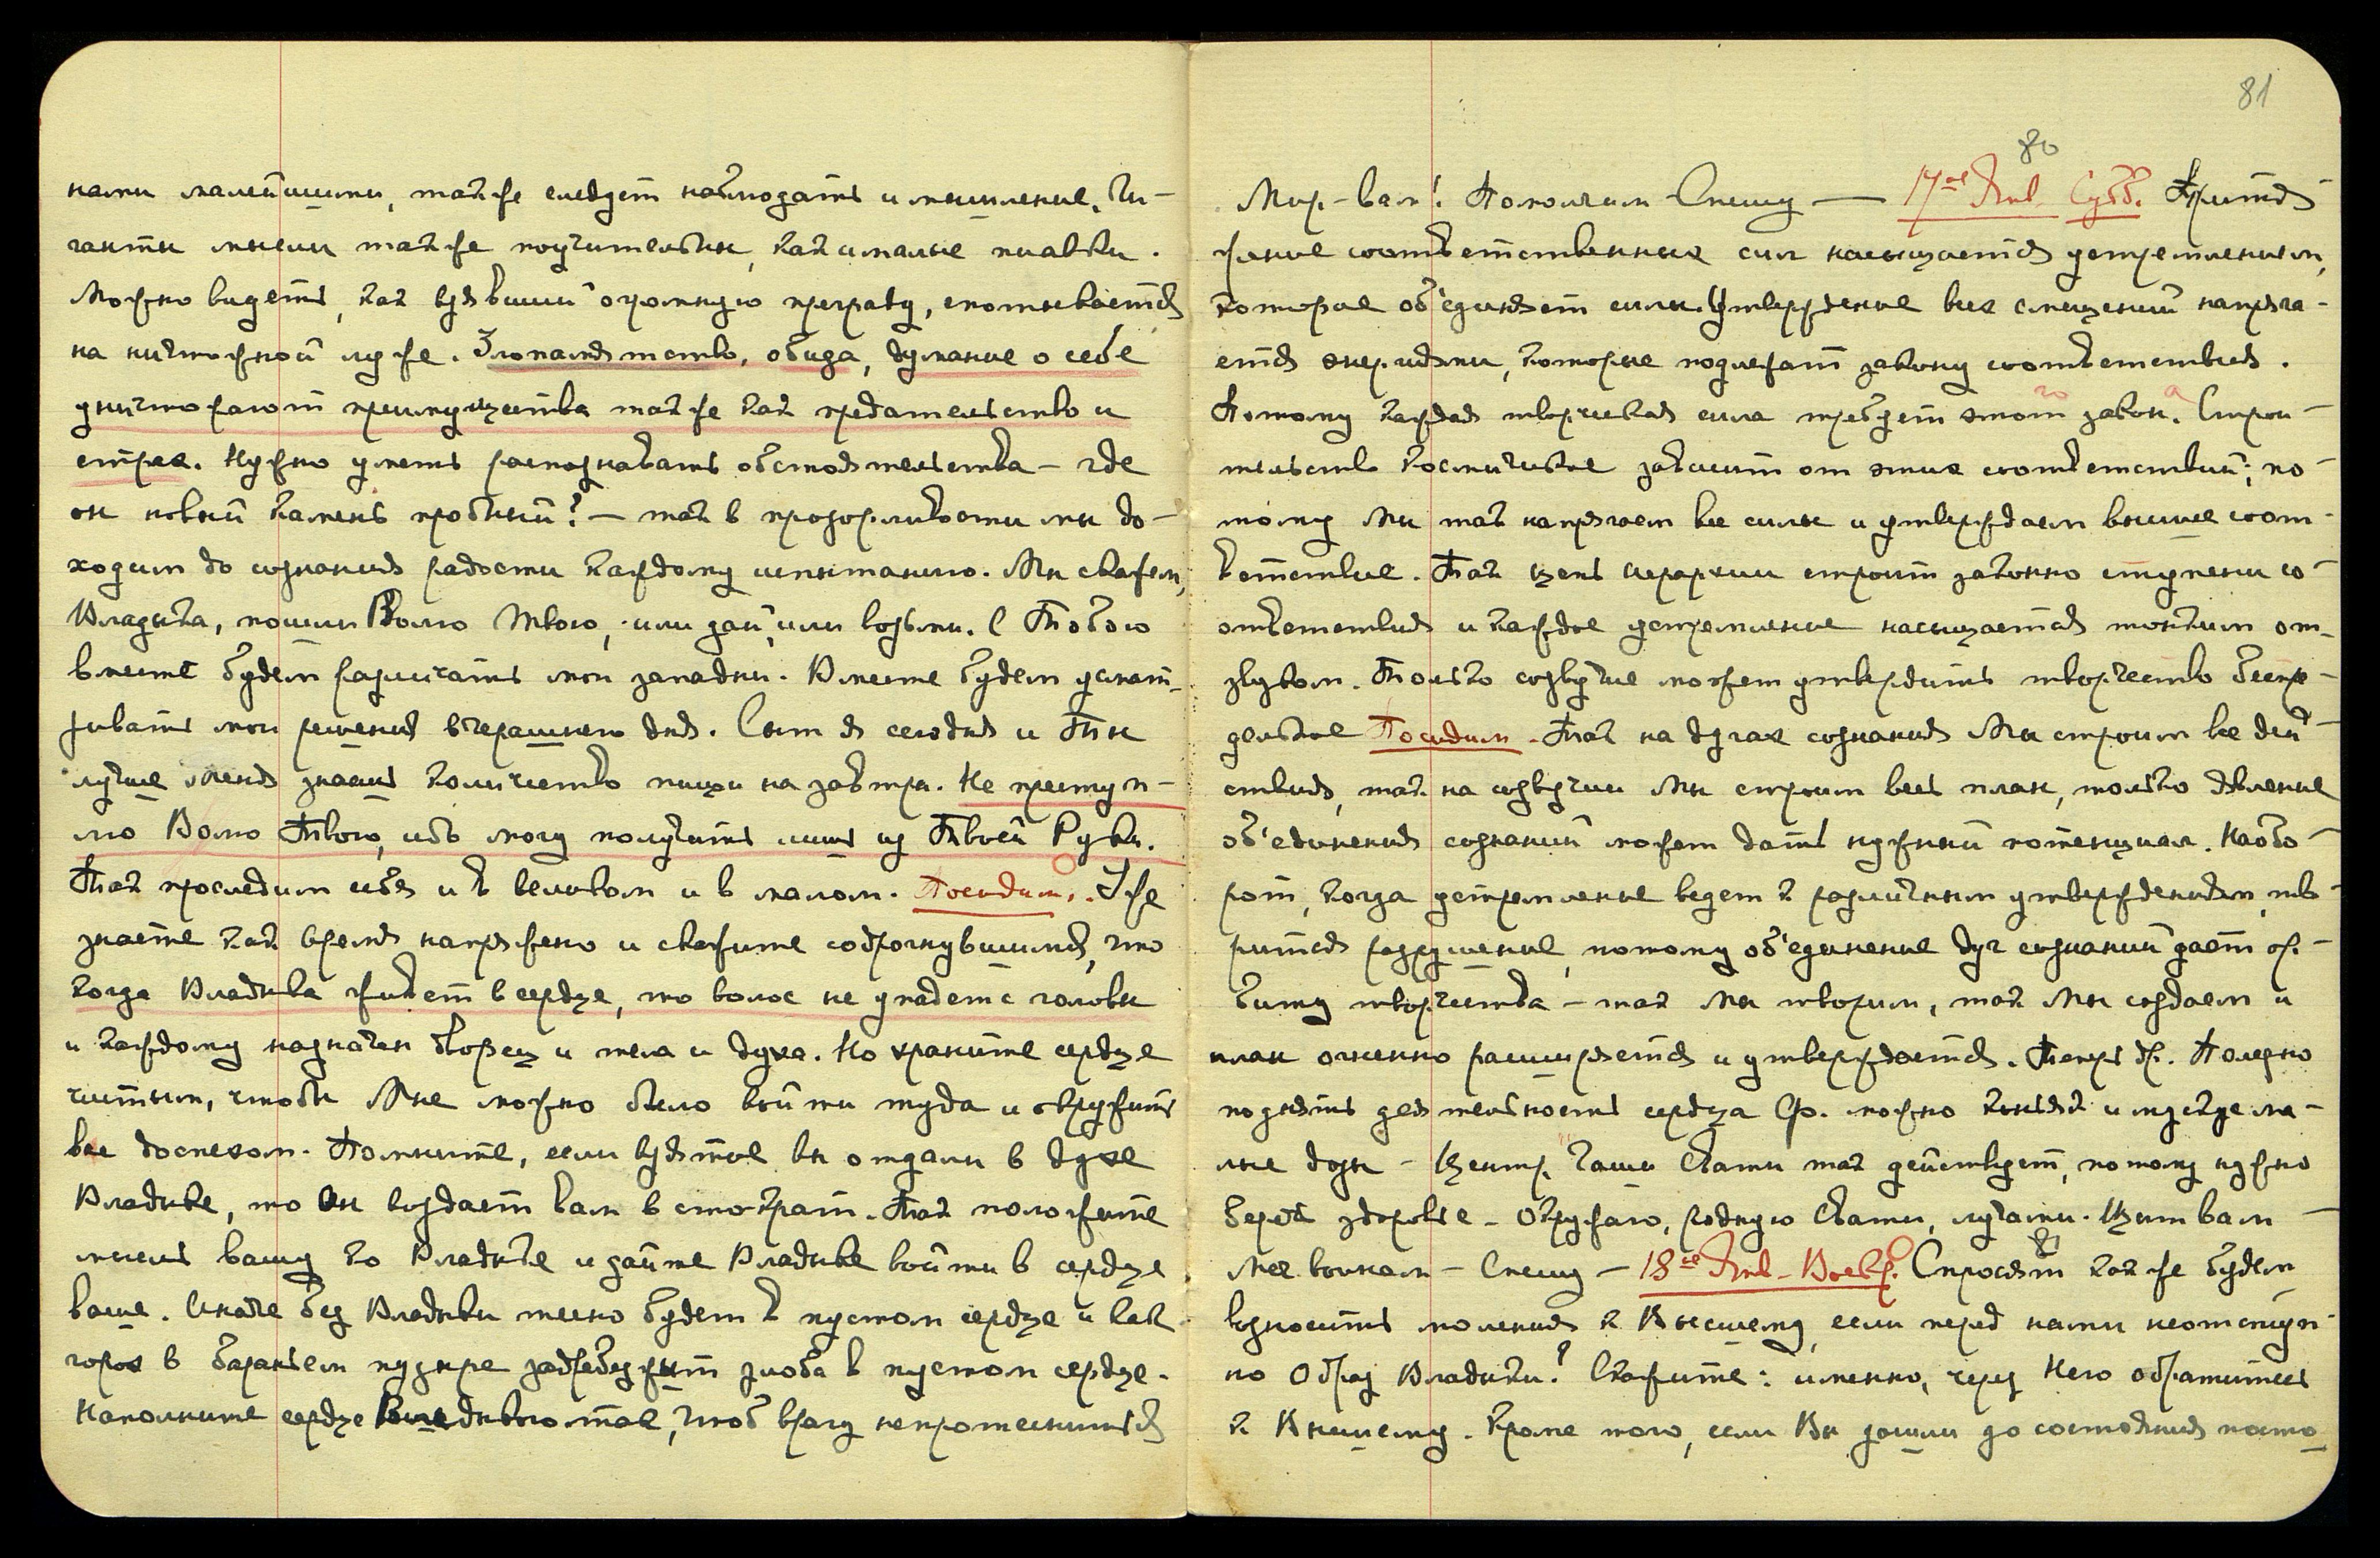 ками малейшими, также следует наблюдать и мышление. Ги-
ганты мысли также поучительны, как и малые пиявки.
Можно видеть, как взявший огромную преграду, спотыкается
на ничтожной луже. Злопамятство, обида, думание о себе
уничтожают преимущества также как предательство и
страх. Нужно уметь распознавать обстоятельства – где
он новый камень пробный? – так в прозорливости мы до-
ходим до сознания радости каждому испытанию. Мы скажем,
Владыка, пошли Волю Твою, или дай, или возьми. С Тобою
вместе будем различать мои западни. Вместе будем усмат-
ривать мои решения вчерашнего дня. Сыт я сегодня и Ты
лучше меня знаешь количество пищи на завтра. Не преступ-
лю Волю Твою, ибо могу получить лишь из Твоей Руки.
Так проследим себя и в великом и в малом. Посидим. Уже
знаете как время напряжено и скажите содрогнувшимся, что
когда Владыка живет в сердце, то волос не упадет с головы
и каждому назначен дворец и тела и духа. Но храните сердце
чистым, чтобы Мне можно было войти туда и окружить
вас доспехом. Помните, если взятое вы отдали в духе
Владыке, то Он воздает вам в стократ. Так положите
мысль вашу ко Владыке и дайте Владыке войти в сердце
ваше. Иначе без Владыки тесно будет в пустом сердце и как
горох в бараньем пузыре задребезжит злоба в пустом сердце.
Наполните сердце Владыкою так, чтоб врагу не протесниться
81
80
Мир – вам! Помолчим Спешу — 17ое Янв. Субб. Притя-
жение соответственных сил насыщается устремлением,
которое об'единяет силы. Утверждение всех смещений напряга-
ется энергиями, которые подлежат закону соответствия.
Потому каждая творческая сила требует этого закона. Строи-
тельство космическое зависит от этих соответствий; по-
тому Мы так напрягаем все силы и утверждаем высшие соот-
ветствие. Так цепь Иерархии строит законно ступени со-
ответствия и каждое устремление насыщается тонким от-
звуком. Только созвучие может утвердить творчество беспре-
дельное Посидим. Так на духах сознания Мы строим все дей-
ствия, так на созвучии Мы строим весь план, только явление
об'единения сознаний может дать нужный потенциал. Наобо-
рот, когда устремление ведет к различным утверждениям, тво-
рится разрушение, потому об'единение дух сознаний дает ор-
биту творчества – так Мы творим, так Мы создаем и
план огненно расширяется и утверждается. Теперь др. Полезно
поднять деятельность сердца Ф. можно коньяк и мускус ма-
лые дозы – Центр. Чаши Свати так действует, потому нужно
беречь здоровье – Окружаю, родную Свати, лучами. Щит вам –
Меч воинам – Спешу – 18ое Янв – Воскр. Спросят как же будем
возносить моления к Высшему, если перед нами неотступ-
но Образ Владыки? Скажите: именно, через Него обратитесь
к Высшему. Кроме того, если Вы дошли до состояния посто-